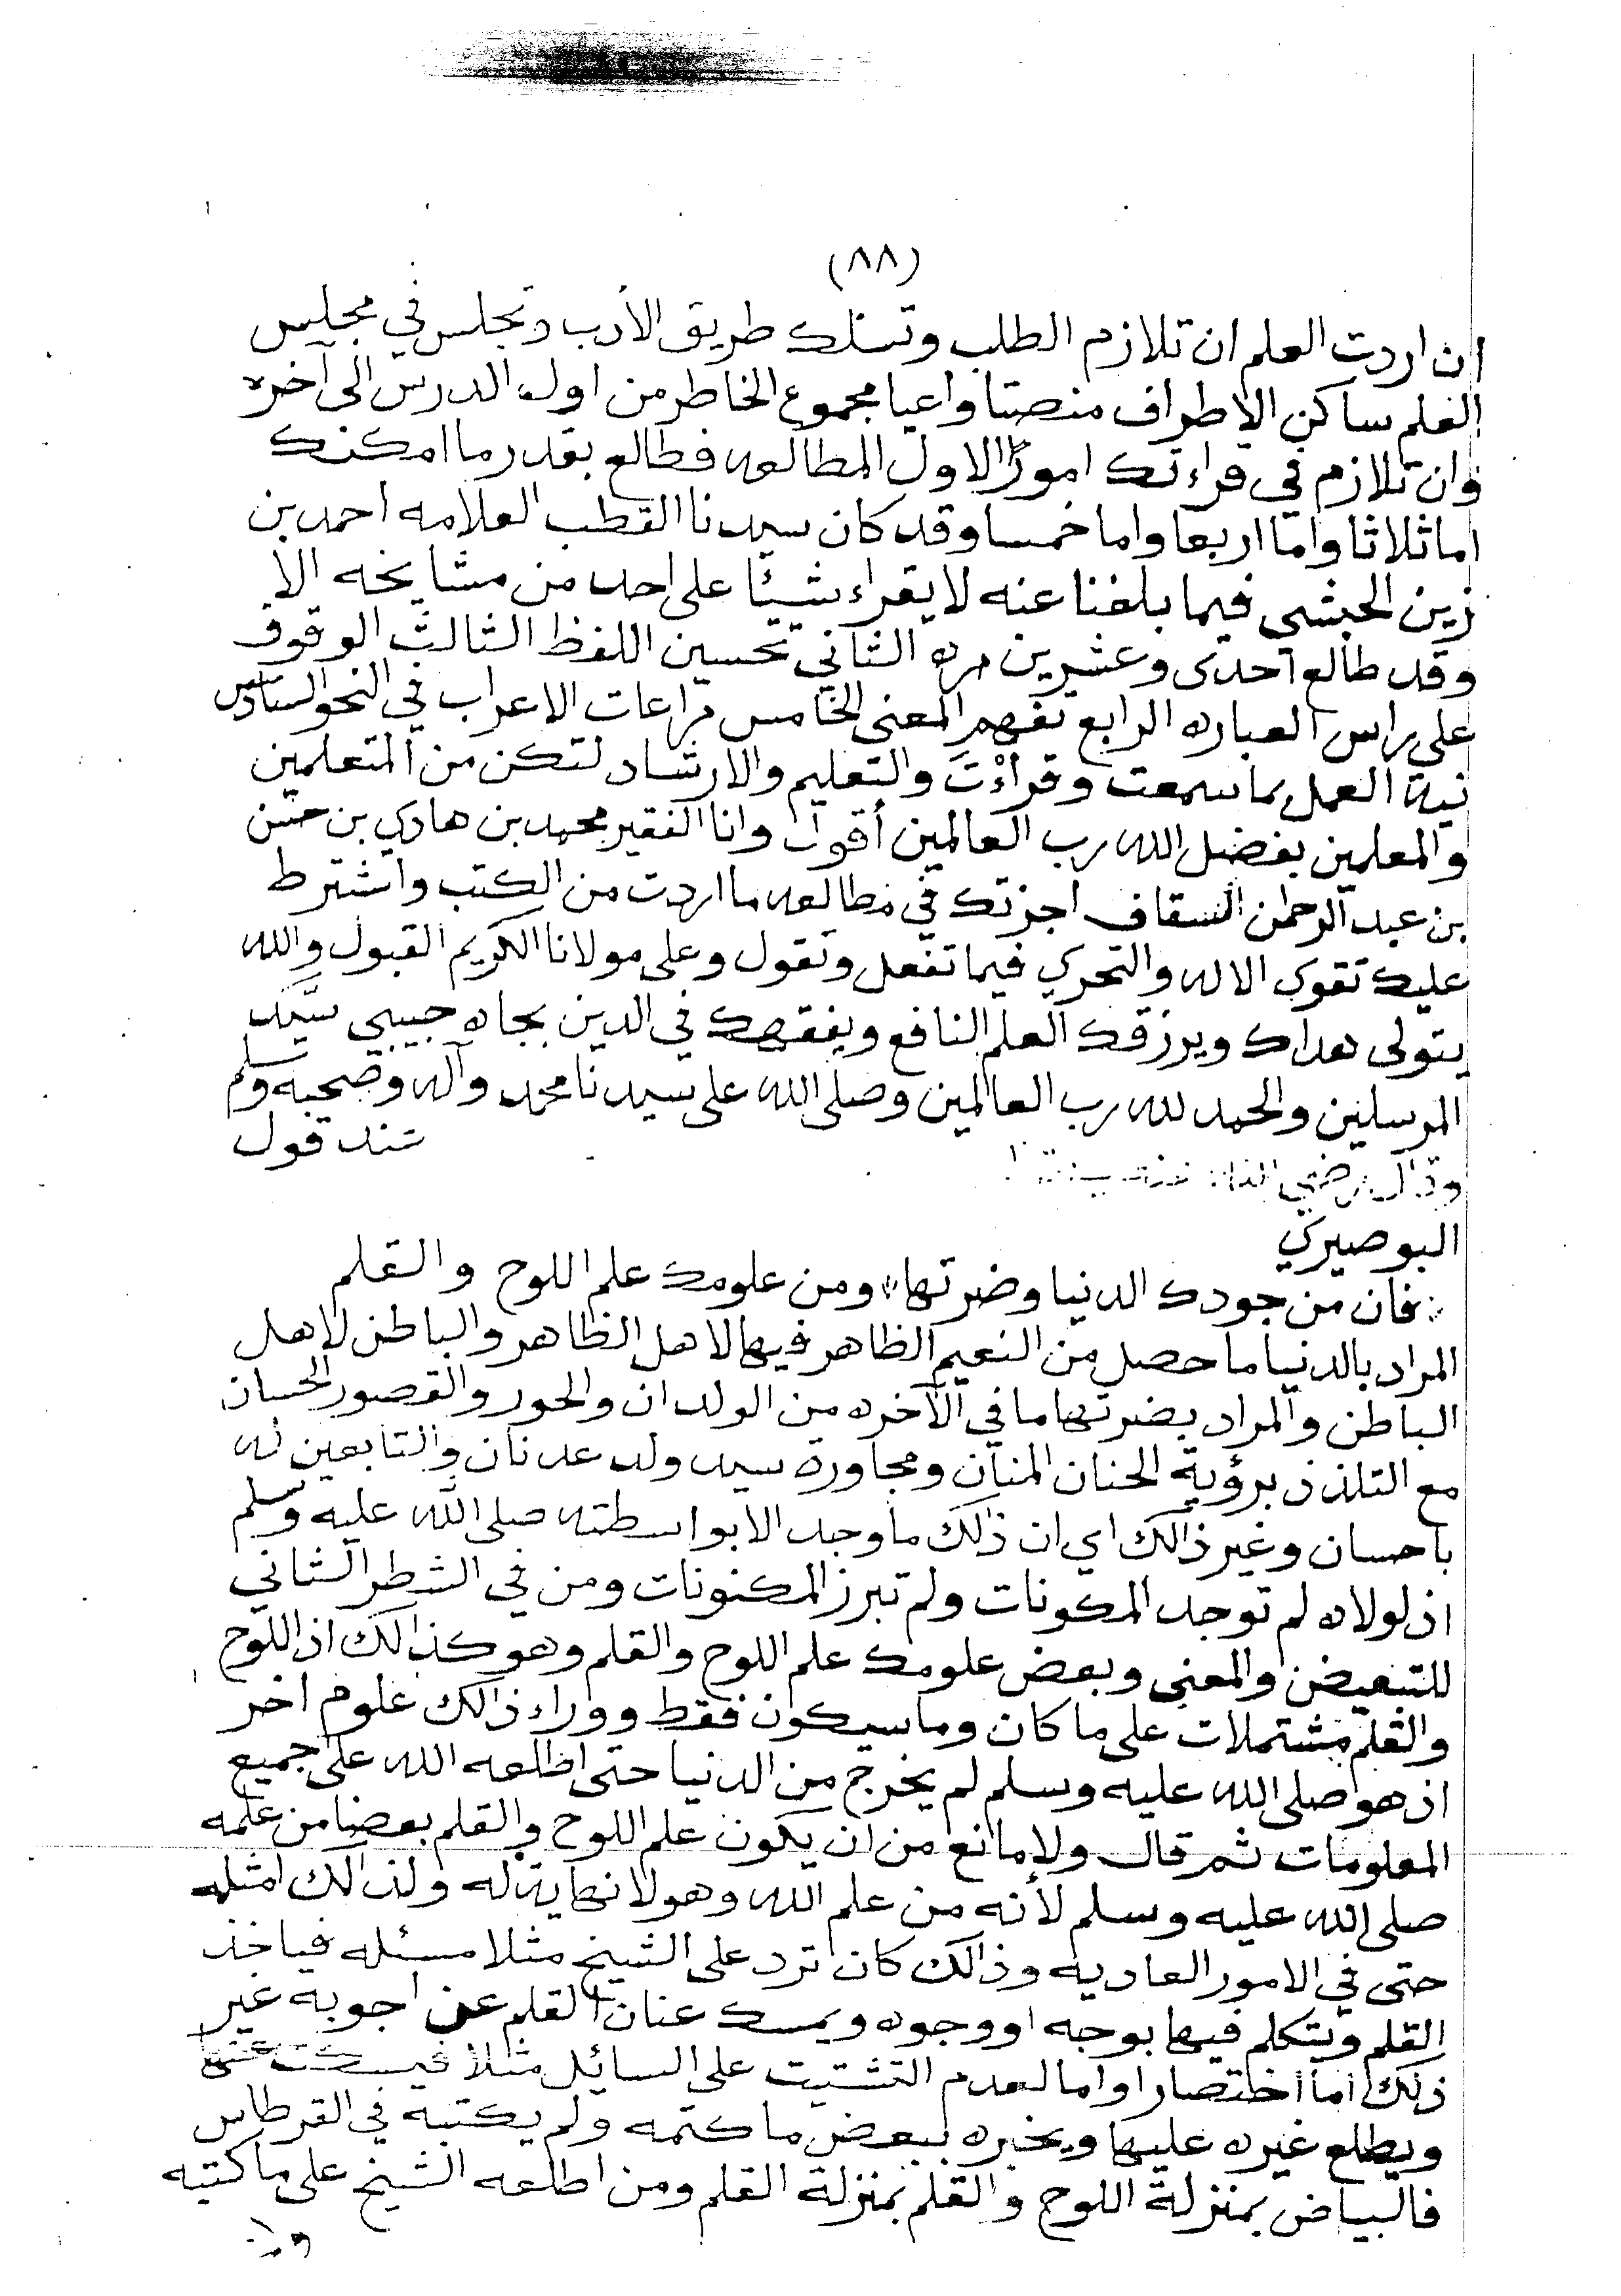 (٨٨)
ان اردت العلم ان تلازم الطلب وتسلك طريق الأدب وتجلس في مجليس
العلم ساكن الاطراف منصتا واعيا مجموع الخاطر من اول الدرس الى آخره
وان تلازم في قراءتك امورًا الاول المطالعه فطالع بقدر ما امكنك
اما ثلاثا واما اربعا واما خمسا وقد كان سيدنا القطب العلامه احمد بن
زين الحبشي فيما بلغنا عنه لا يقراء شيئًا على احد من مشايخه الا
وقد طالع احدى وعشرين مره الثاني تحسين اللفظ الثالث الوقوف
على راس العباره الرابع تفهم المعنى الخامس مراعات الاعراب في النحو السادس
نية العمل بما سمعت وقرأت والتعليم والارشاد لتكن من المتعلمين
والمعلمين بفضل الله رب العالمين أقول وانا الفقير محمد بن هادي بن حسن
بن عبد الرحمان السقاف اجزتك في مطالعه ما اردت من الكتب واشترط
عليك تقوى الاله والتحري فيما تفعل وتقول وعلى مولانا الكريم القبول والله
يتولى هداك ويرزقك العلم النافع ويفقهك في الدين بجاه حبيبي سيّد
المرسلين والحمد لله رب العالمين وصلى الله على سيدنا محمد وآله وصحبه وسلم
وقال رضي الله عنه عند قول
البوصيري
فان من جودك الدنيا وضرتها ومن علومك علم اللوح والقلم
المراد بالدنيا ما حصل من النعيم الظاهر فيها لاهل الظاهر والباطن لاهل
الباطن والمراد بضرتها ما في الآخره من الولدان والحور والقصور الحسان
مع التلذذ برؤية الحنان المنان ومجاورة سيد ولد عدنان والتابعين له
باحسان وغير ذالك اي ان ذالك ما وجد الا بواسطته صلى الله عليه وسلم
اذ لولاه لم توجد المكونات ولم تبرز المكنونات ومن في الشطر الثاني
للتبعيض والمعنى وبعض علومك علم اللوح والقلم وهو كذالك اذ اللوح
والقلم مشتملات على ما كان وما سيكون فقط ووراء ذالك علوم اخر
اذ هو صلى الله عليه وسلم لم يخرج من الدنيا حتى اطلعه الله على جميع
المعلومات ثم قال ولا مانع من ان يكون علم اللوح والقلم بعضا من علمه
صلى الله عليه وسلم لأنه من علم الله وهو لا نهاية له ولذالك امثله
حتى في الامور العاديه وذالك كان ترد على الشيخ مثلا مسئله فياخذ
القلم ويتكلم فيها بوجه او وجوه ويمسك عنان القلم عن اجوبه غير
ذلك اما اختصارا واما لعدم التشتيت على السائل مثلا فيسكت عنها
ويطلع غيره عليها ويخبره ببعض ما كتمه ولم يكتبه في القرطاس
فالبياض بمنزلة اللوح والقلم بمنزلة القلم ومن اطلعه الشيخ على ما كتبه